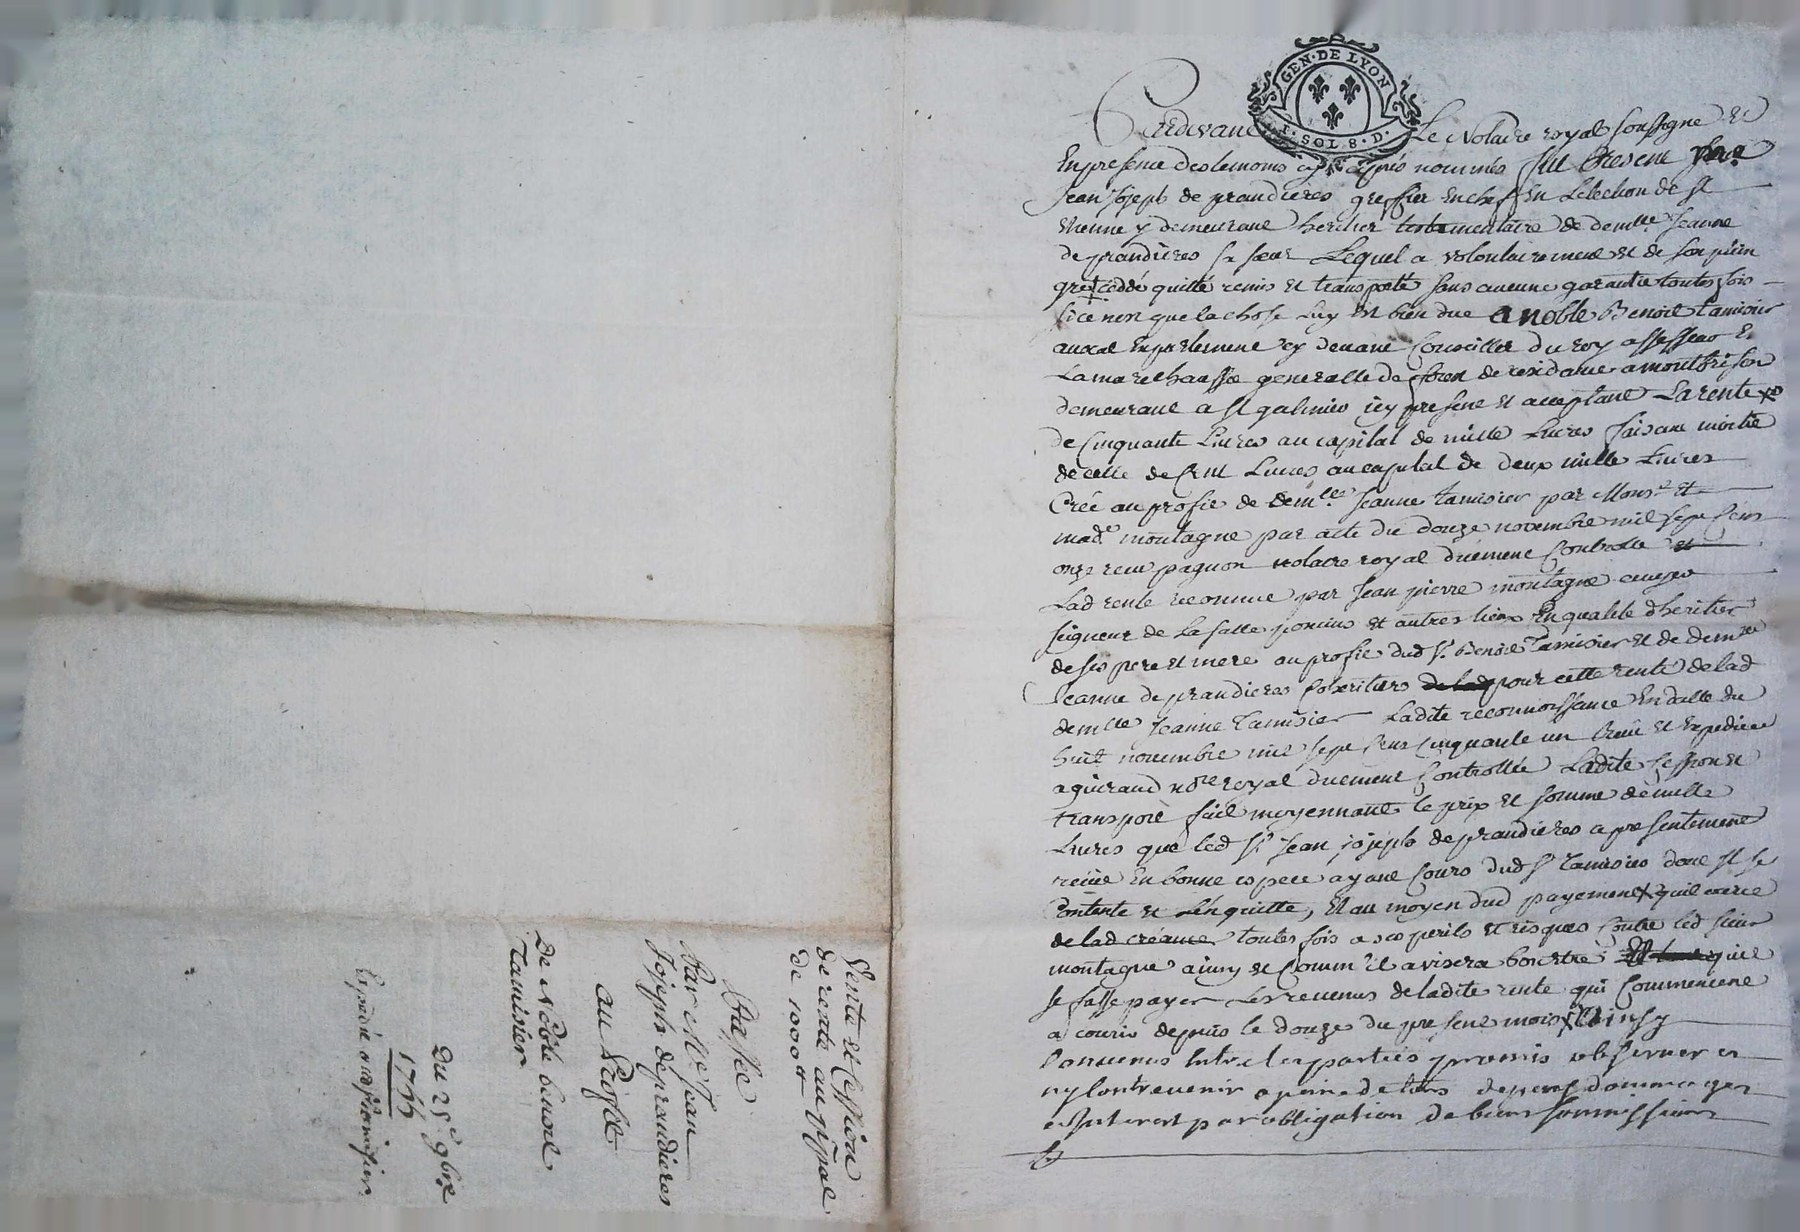 GEN·DE LYON
I·SOL 8·D·
Pardevant Le Notaire royal soussigne et
En presence des temoins cy apres nommés fut present
Jean Joseph de prandieres greffier en chef En Lelection de st
etienne y demeurant heritier testamentaire de demlle Jeanne
de prandieres sa sœur Lequel a volontairement et de son plein
gré ceddé quitté remis et transporté sans aucune garantie toutes fois
si ce nest que la chose Luy est bien due a noble Benoit tamisier
avocat En parlement cy devant Conseiller du roy assesseur En
La marechaussée generalle de forest de residance a montbrison
demeurant a st galmier icy present et acceptant La rente
de Cinquante Livres au capital de mille Livres faisant moitié
de celle de Cent Livres au capital de deux mille Livres
Créé au profit de demlle Jeanne tamisier par Monsr et
made montagne par acte du douze novembre mil sept Cens
onze receu pagnon notaire royal duement Controllé et
Lad rente reconnue par Jean pierre montagne ecuyer
seigneur de La salle poncins et autres lieux En qualité dheritier
de ses pere et mere au profit dud sr Benoit Tamisier et de demlle
Jeanne de prandieres Coheritiers de lad pour cette rente de lad
demlle Jeanne Tamisier Ladite reconnoissance En datte du
huit novembre mil sept Cens Cinquante un Receue et Expediée
aguiraud nore royal duement Controllée Ladite Cession et
transport fait moyennant le prix et somme de mille
Livres que led sr Jean joseph de prandieres a presentement
reçue En bonne espece ayant Cours dud sr Tamisier dont Il se
Contente et Len quitte, Et au moyen dud payement quil
de lad créance toutes fois a ses perils et risques Contre led sieur
montagne ainsy et Comm Il avisera bon etre quil
se fasse payer Les revenus de ladite rente qui Commencent
a courir depuis le douze du present mois Ainsy
Convenus Entre les parties promis observer et
ny Contrevenir a peine de tous depens dommages
et Interest par obligation de leurs soumissions
Vente et Cession
de rente au ppal
de 1000 lt
Passée
Par Mre Jean
Joseph deprandieres
au Profit
De Noble benoit
Tamisier
Du 25e 9bre
1755
Expedié aud sr tamisier